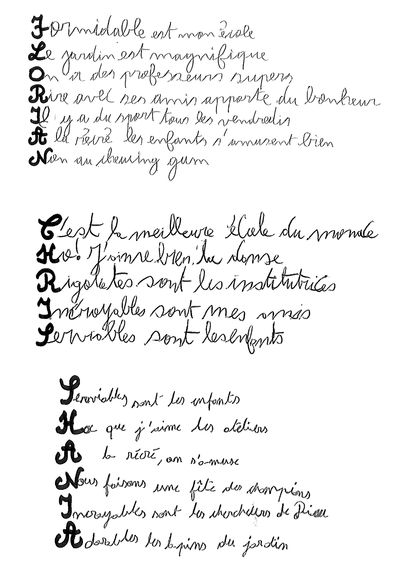 Formidable est mon école
Le jardin est magnifique
On a des professeurs supers
Rire avec ses amis apporte du bonheur
Il y a du sport tous les vendredis
A la récré les enfants s'amusent bien
Non au chewing gum
C'est la meilleure école du monde
Ho! J'aime bien la danse
Rigolotes sont les institutrices
Incroyables sont mes amis
Serviables sont les enfants
Serviables sont les enfants
Ha que j'aime les ateliers
A la récré, on s'amuse
Nous faisons une fête des champions
Incroyables sont les chercheurs de Dieu
Adorables les lapins du jardin